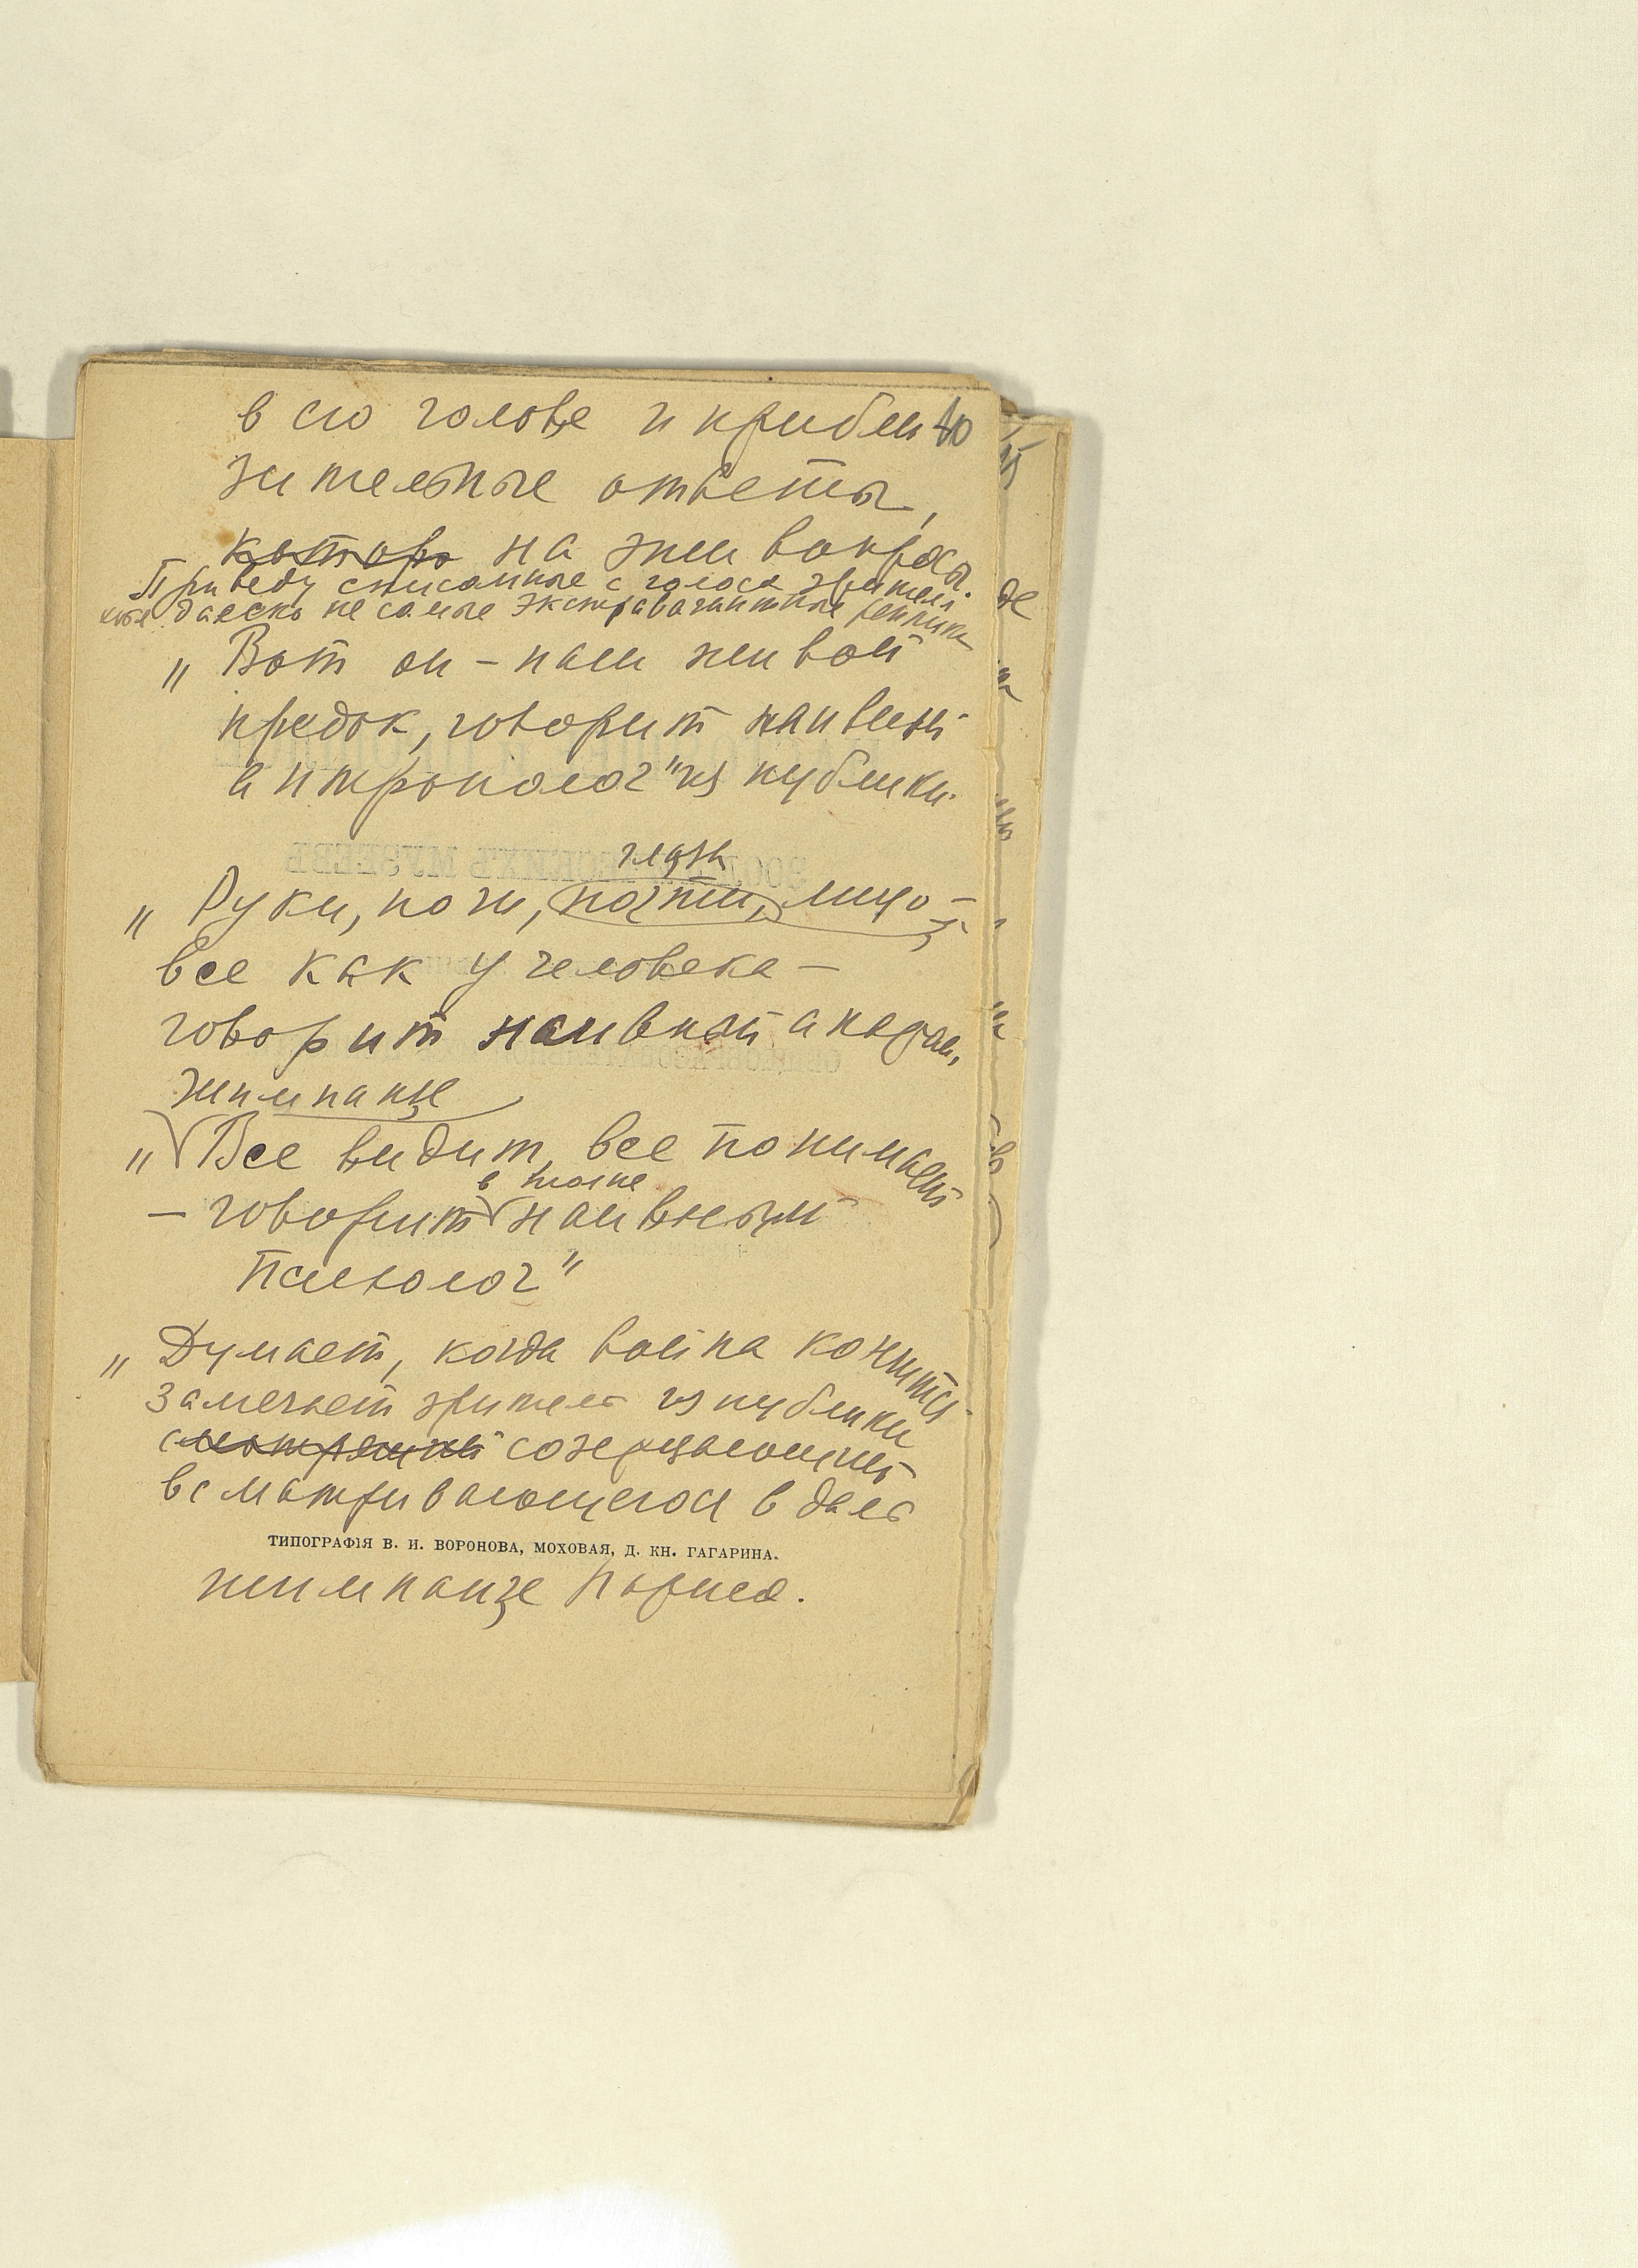 в его голове и прибли 40
зительные ответы,
которы на эти вопросы.
Приведу списанные с голоса зрителей
далеко не самые экстравагантные реплики
„Вот он – наш живой
предок, говорит наивный
антрополог" из публики.
глаза
„Руки, ноги, ногти, лицо –
все как у человека –
говорит наивный анатом,
шимпанзе
„Все видит, все понимает
в толпе
– говорит наивный
психолог"
„Думает, когда война кончится
замечает зритель из публики
смотрящий созерцающий
всматривающегося в даль
ТИПОГРАФІЯ В. И. ВОРОНОВА, МОХОВАЯ, Д. КН. ГАГАРИНА.
шимпанзе Париса.